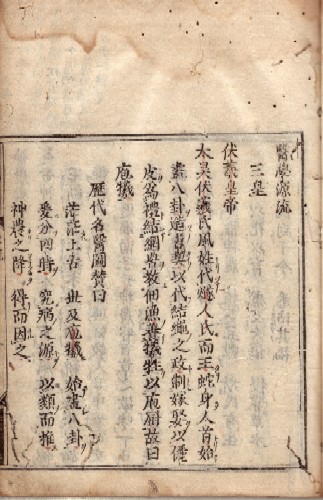 醫學源流
三皇
伏羲皇帝
太昊伏羲氏風姓代燧人氏而王蛇身人首始
畫八卦造書契以代結繩之政制嫁娶以儷
皮為禮結網罟教佃漁養犧牲以庖厨故曰
庖犧
歷代名醫圖贊曰
茫茫上古 世及庖犧 始畫八卦
爰分四時 究病之源 以類而推
神農之降 得而因之